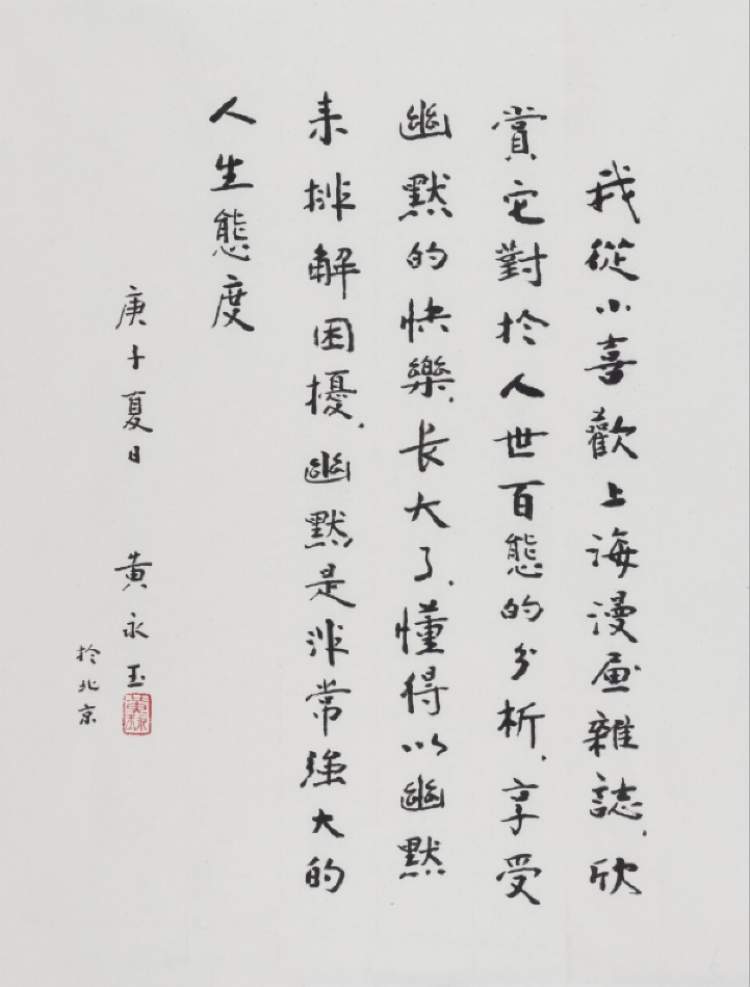 我從小喜歡上海漫画雜誌，欣
賞它對於人世百態的分析，享受
幽默的快樂，長大了，懂得以幽默
来排解困擾，幽默是非常強大的
人生態度
庚子夏日 黄永玉
於北京